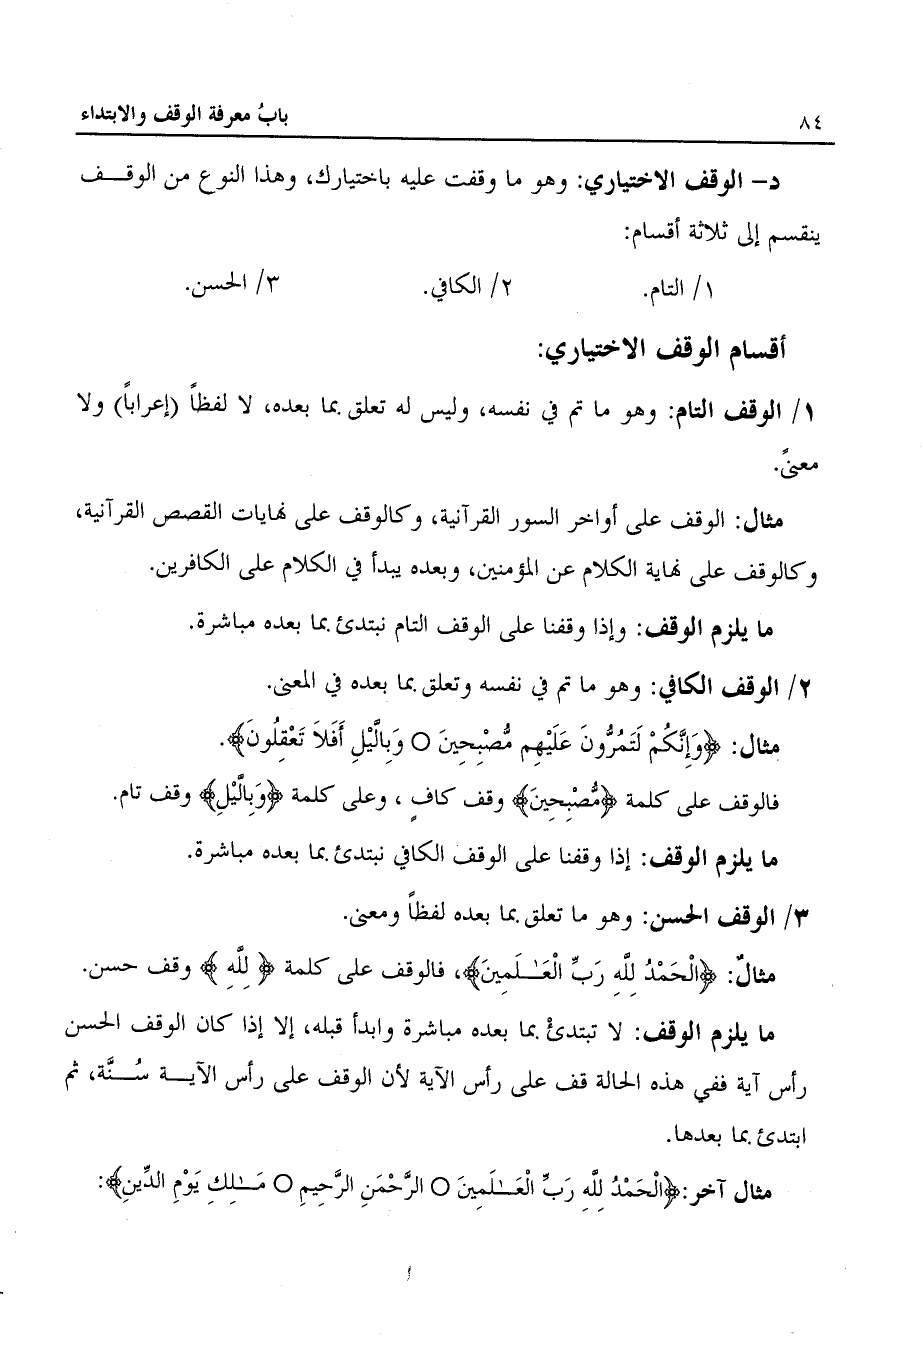 ٨٤ باب معرفة الوقف والابتداء
د– الوقف الاختياري: وهو ما وقفت عليه باختيارك، وهذا النوع من الوقــف
ينقسم إلى ثلاثة أقسام:
١/ التام. ٢/ الكافي. ٣/ الحسن.
أقسام الوقف الاختياري:
١/ الوقف التام: وهو ما تم في نفسه، وليس له تعلق بما بعده، لا لفظاً (إعراباً) ولا
معنىً.
مثال: الوقف على أواخر السور القرآنية، وكالوقف على نهايات القصص القرآنية،
وكالوقف على نهاية الكلام عن المؤمنين، وبعده يبدأ في الكلام على الكافرين.
ما يلزم الوقف: وإذا وقفنا على الوقف التام نبتدئ بما بعده مباشرة.
٢/ الوقف الكافي: وهو ما تم في نفسه وتعلق بما بعده في المعنى.
مثال: ﴿وَإِنَّكُمْ لَتَمُرُّونَ عَلَيْهِم مُّصْبِحِينَ ○ وَبِالَّيْلِ أَفَلاَ تَعْقِلُونَ﴾.
فالوقف على كلمة ﴿مُّصْبِحِينَ﴾ وقف كافٍ ، وعلى كلمة ﴿وَبِالَّيْلِ﴾ وقف تام.
ما يلزم الوقف: إذا وقفنا على الوقف الكافي نبتدئ بما بعده مباشرة.
٣/ الوقف الحسن: وهو ما تعلق بما بعده لفظاً ومعنى.
مثالٌ: ﴿الْحَمْدُ لِلَّهِ رَبِّ الْعَـٰلَمِينَ﴾، فالوقف على كلمة ﴿ لِلَّهِ ﴾ وقف حسن.
ما يلزم الوقف: لا تبتدئْ بما بعده مباشرة وابدأ قبله، إلا إذا كان الوقف الحسن
رأس آية ففي هذه الحالة قف على رأس الآية لأن الوقف على رأس الآيــة سُــنَّة، ثم
ابتدئ بما بعدها.
مثال آخر: ﴿الْحَمْدُ لِلَّهِ رَبِّ الْعَـٰلَمِينَ ○ الرَّحْمَنِ الرَّحِيمِ ○ مَـٰلِكِ يَوْمِ الدِّينِ﴾: